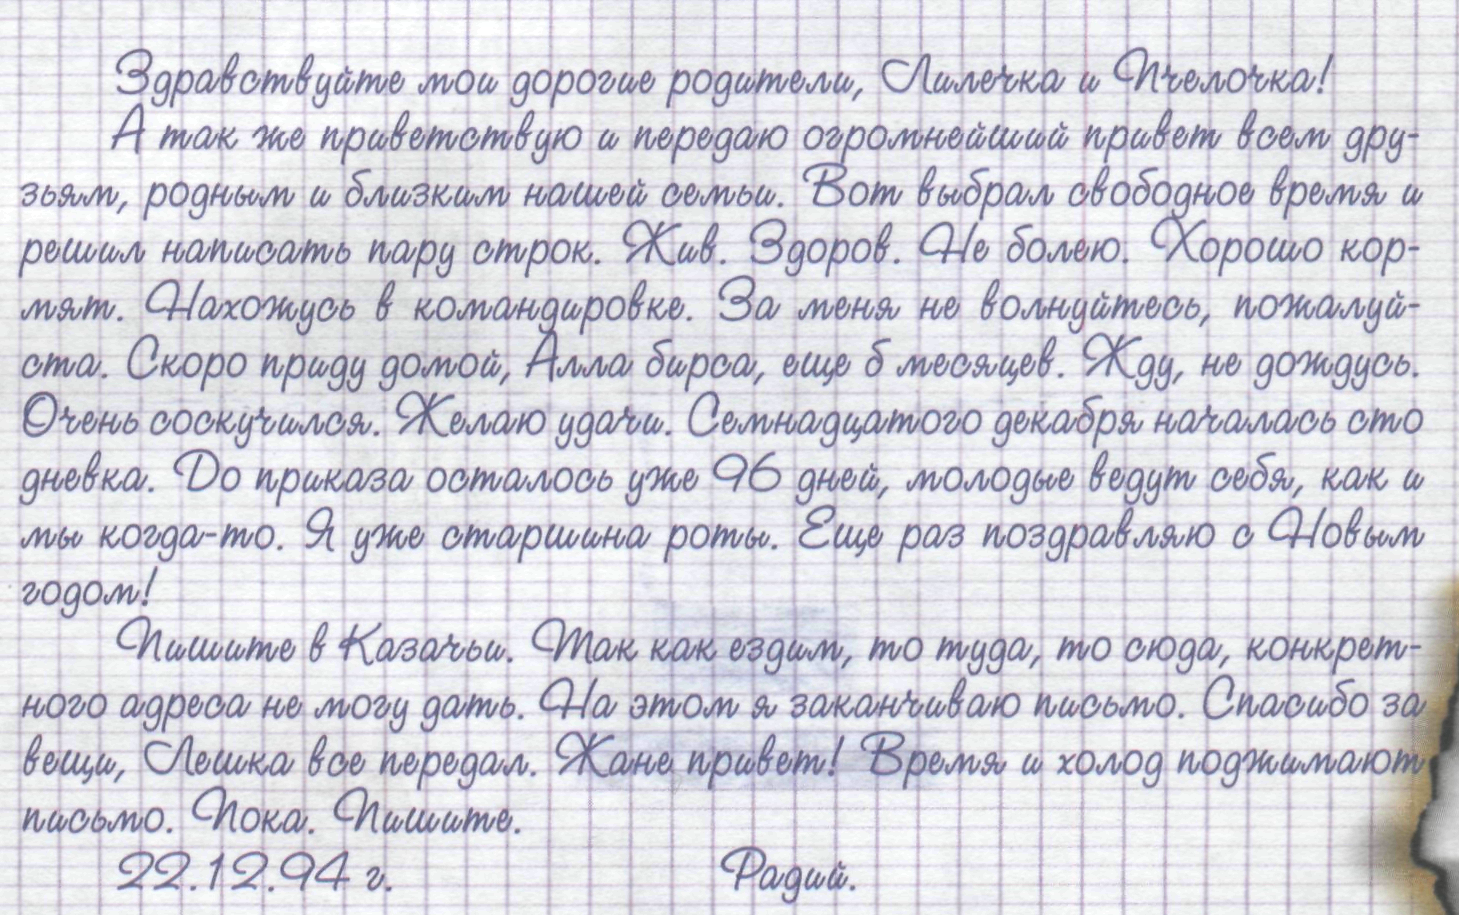 Здравствуйте мои дорогие родители, Лилечка и Пчелочка!
А так же приветствую и передаю огромнейший привет всем дру-
зьям, родным и близким нашей семьи. Вот выбрал свободное время и
решил написать пару строк. Жив. Здоров. Не болею. Хорошо кор-
мят. Нахожусь в командировке. За меня не волнуйтесь, пожалуй-
ста. Скоро приду домой, Алла бирса, еще 5 месяцев. Жду, не дождусь.
Очень соскучился. Желаю удачи. Семнадцатого декабря началась сто
дневка. До приказа осталось уже 96 дней, молодые ведут себя, как и
мы когда-то. Я уже старшина роты. Еще раз поздравляю с Новым
годом!
Пишите в Казачьи. Так как ездим, то туда, то сюда, конкрет-
ного адреса не могу дать. На этом я заканчиваю письмо. Спасибо за
вещи, Лешка все передал. Жане привет! Время и холод поджимают
письмо. Пока. Пишите.
22.12.94 г. Радий.